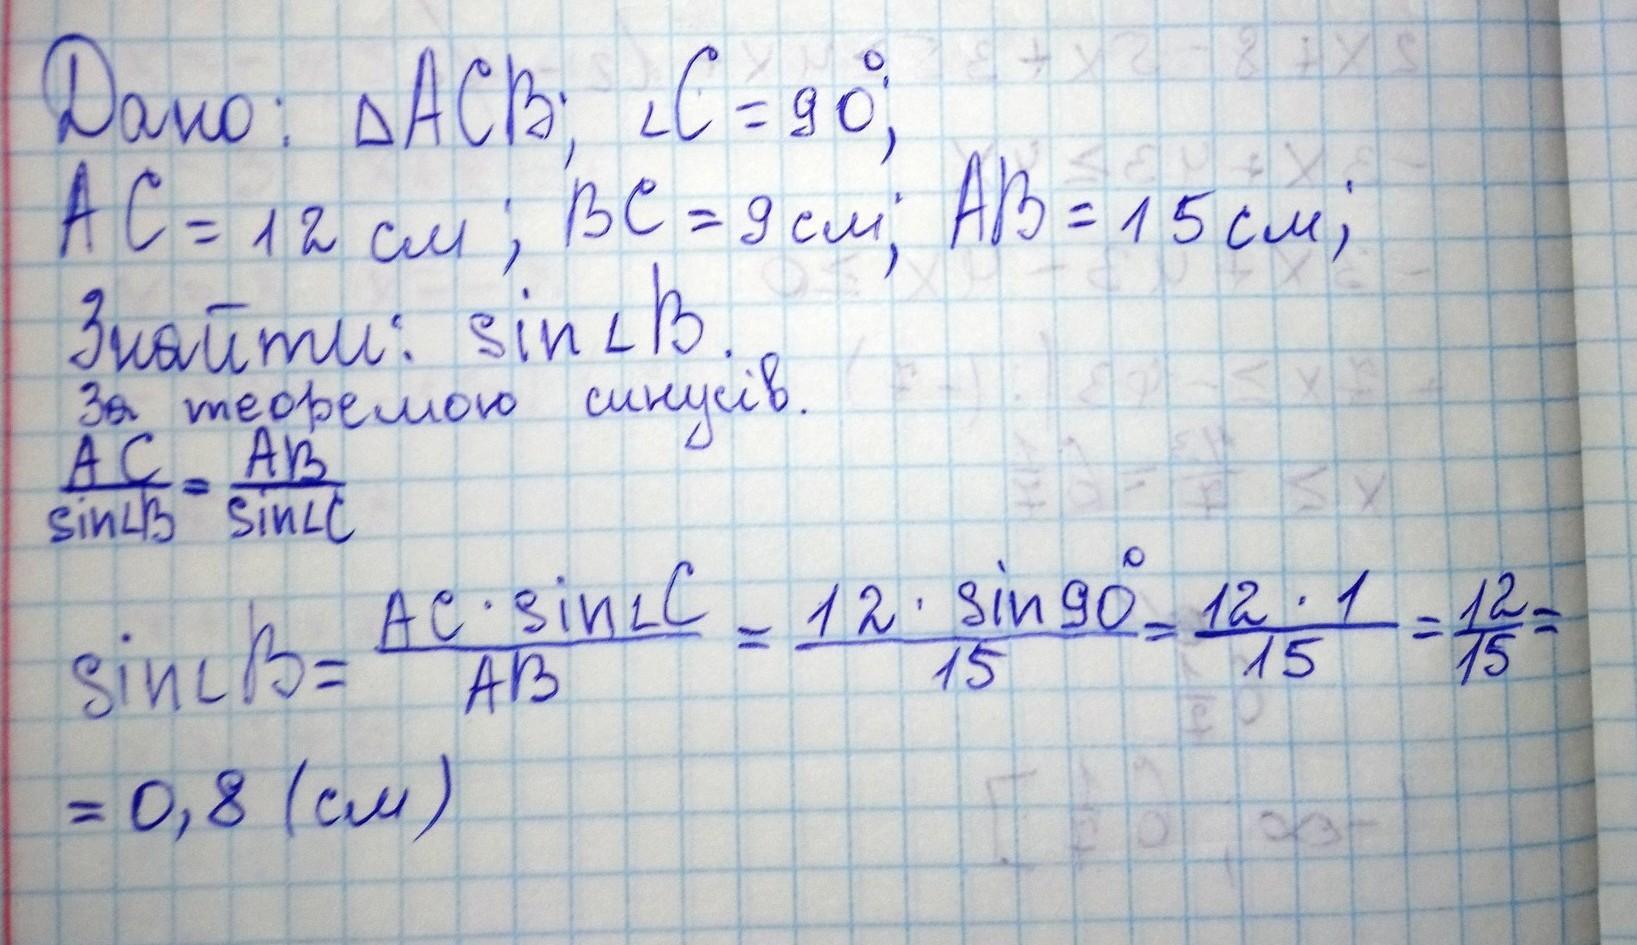 Дано: △ACB; ∠C = 90°;
AC = 12 см; BC = 9 см; AB = 15 см;
Знайти: sin∠B.
За теоремою синусів.
AC/sin∠B = AB/sin∠C
sin∠B = AC · sin∠C/AB = 12 · sin90°/15 = 12 · 1/15 = 12/15 =
= 0,8 (см)